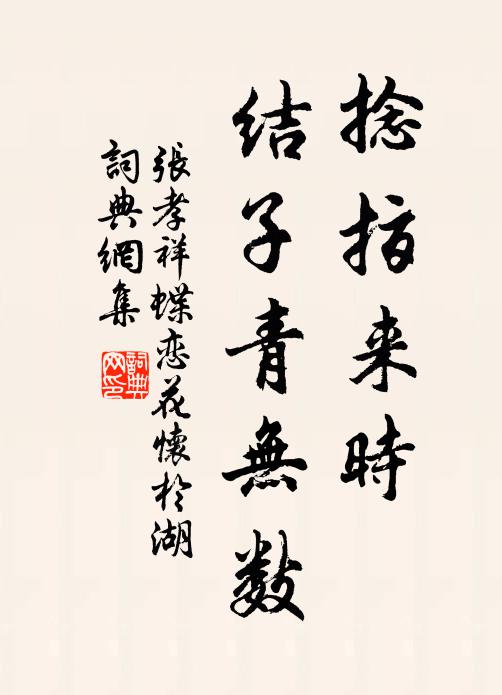 捻指来時
結子青無数
張孝祥蝶恋花懷於湖
詞典網集
詞典網印